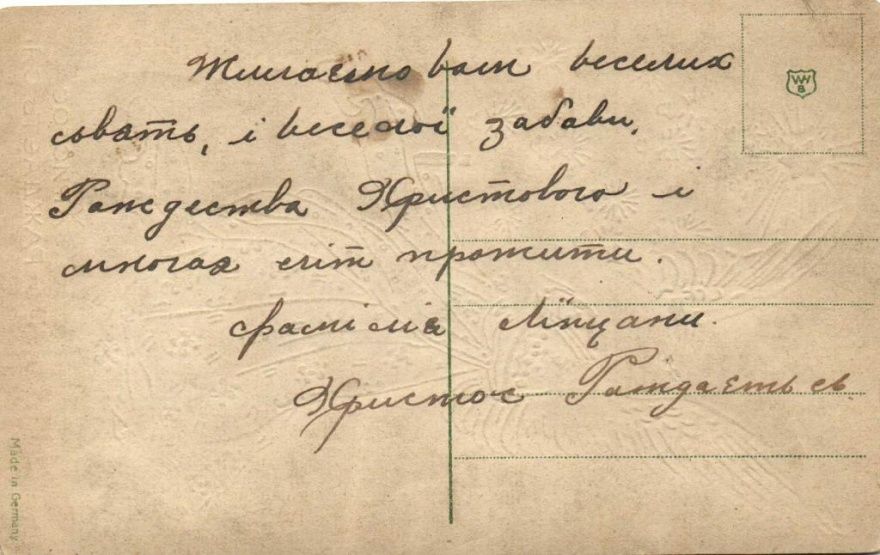 Жичаємо вам веселих
сьвять, і веселої забави,
Раждества Христового і
многая літ прожити.
фамілія Ліщани.
Христос Раждаєть сь
WW
B
Made in Germany